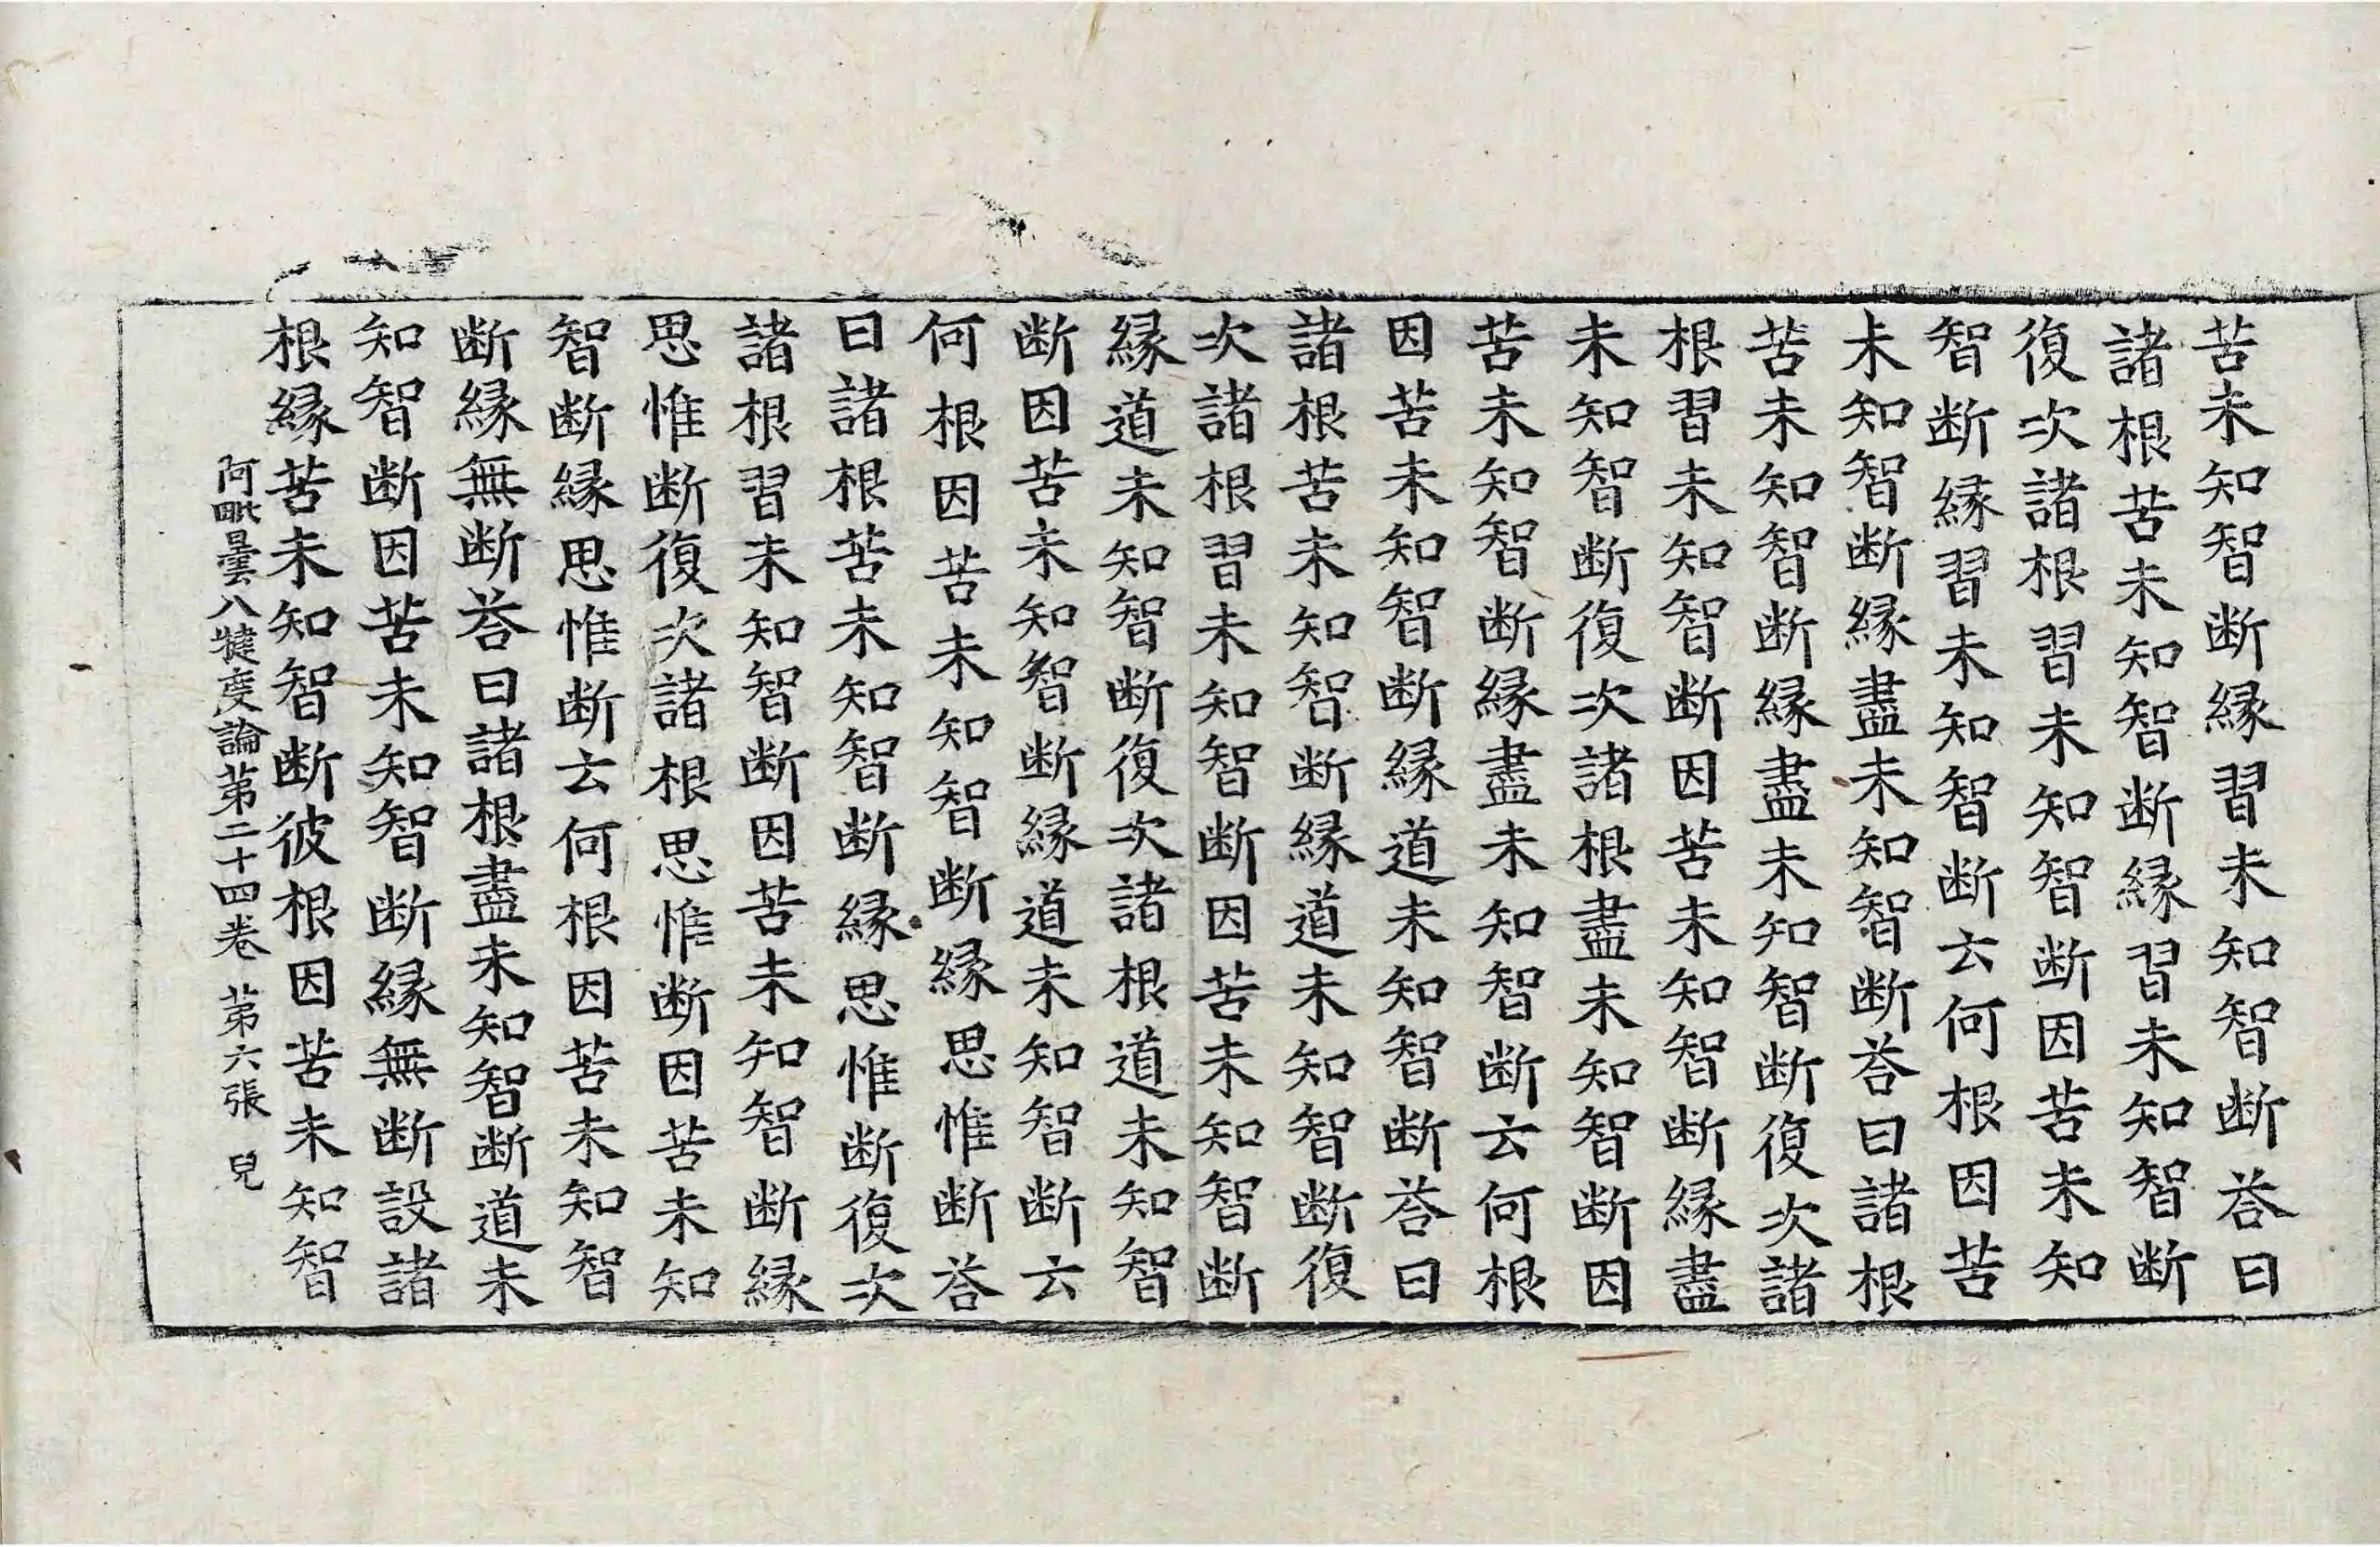 苦未知智断縁習未知智断荅曰
諸根苦未知智断縁習未知智断
復次諸根習未知智断因苦未知
智断縁習未知智断云何根因苦
未知智断縁盡未知智断荅曰諸根
苦未知智断縁盡未知智断復次諸
根習未知智断因苦未知智断縁盡
未知智断復次諸根盡未知智断因
苦未知智断縁盡未知智断云何根
因苦未知智断縁道未知智断荅曰
諸根苦未知智断縁道未知智断復
次諸根習未知智断因苦未知智断
縁道未知智断復次諸根道未知智
断因苦未知智断縁道未知智断云
何根因苦未知智断縁思惟断荅
曰諸根苦未知智断縁思惟断復次
諸根習未知智断因苦未知智断縁
思惟断復次諸根思惟断因苦未知
智断縁思惟断云何根因苦未知智
断縁無断荅曰諸根盡未知智断道未
知智断因苦未知智断縁無断設諸
根縁苦未知智断彼根因苦未知智
阿毗曇八犍度論第二十四卷 第六張 兒